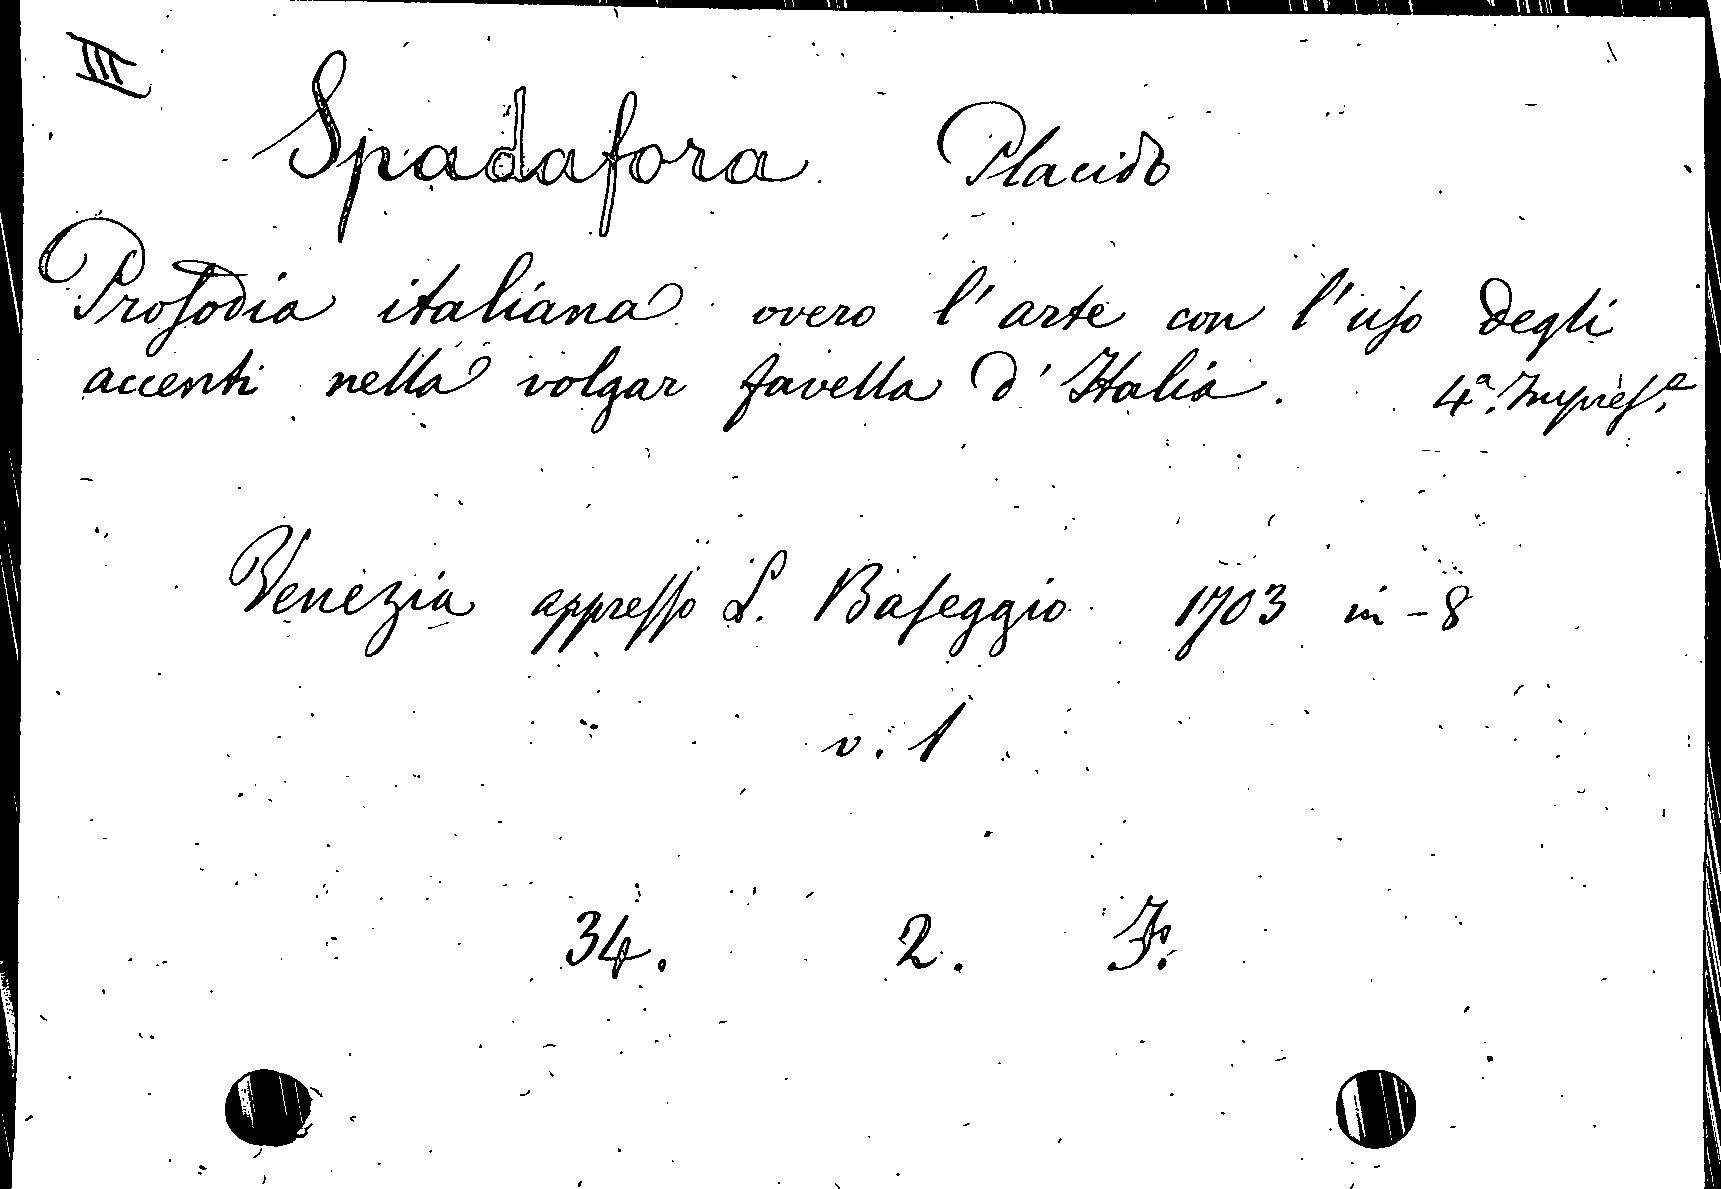 III
Spadafora Placido
Proſodia italiana overo l'arte con l'uſo degli
accenti nella volgar favella d'Italia. 4ª. Impreſ.ᵉ
Venezia appreſſo L. Baſeggio 1703 in-8
v. 1
34. 2. F.